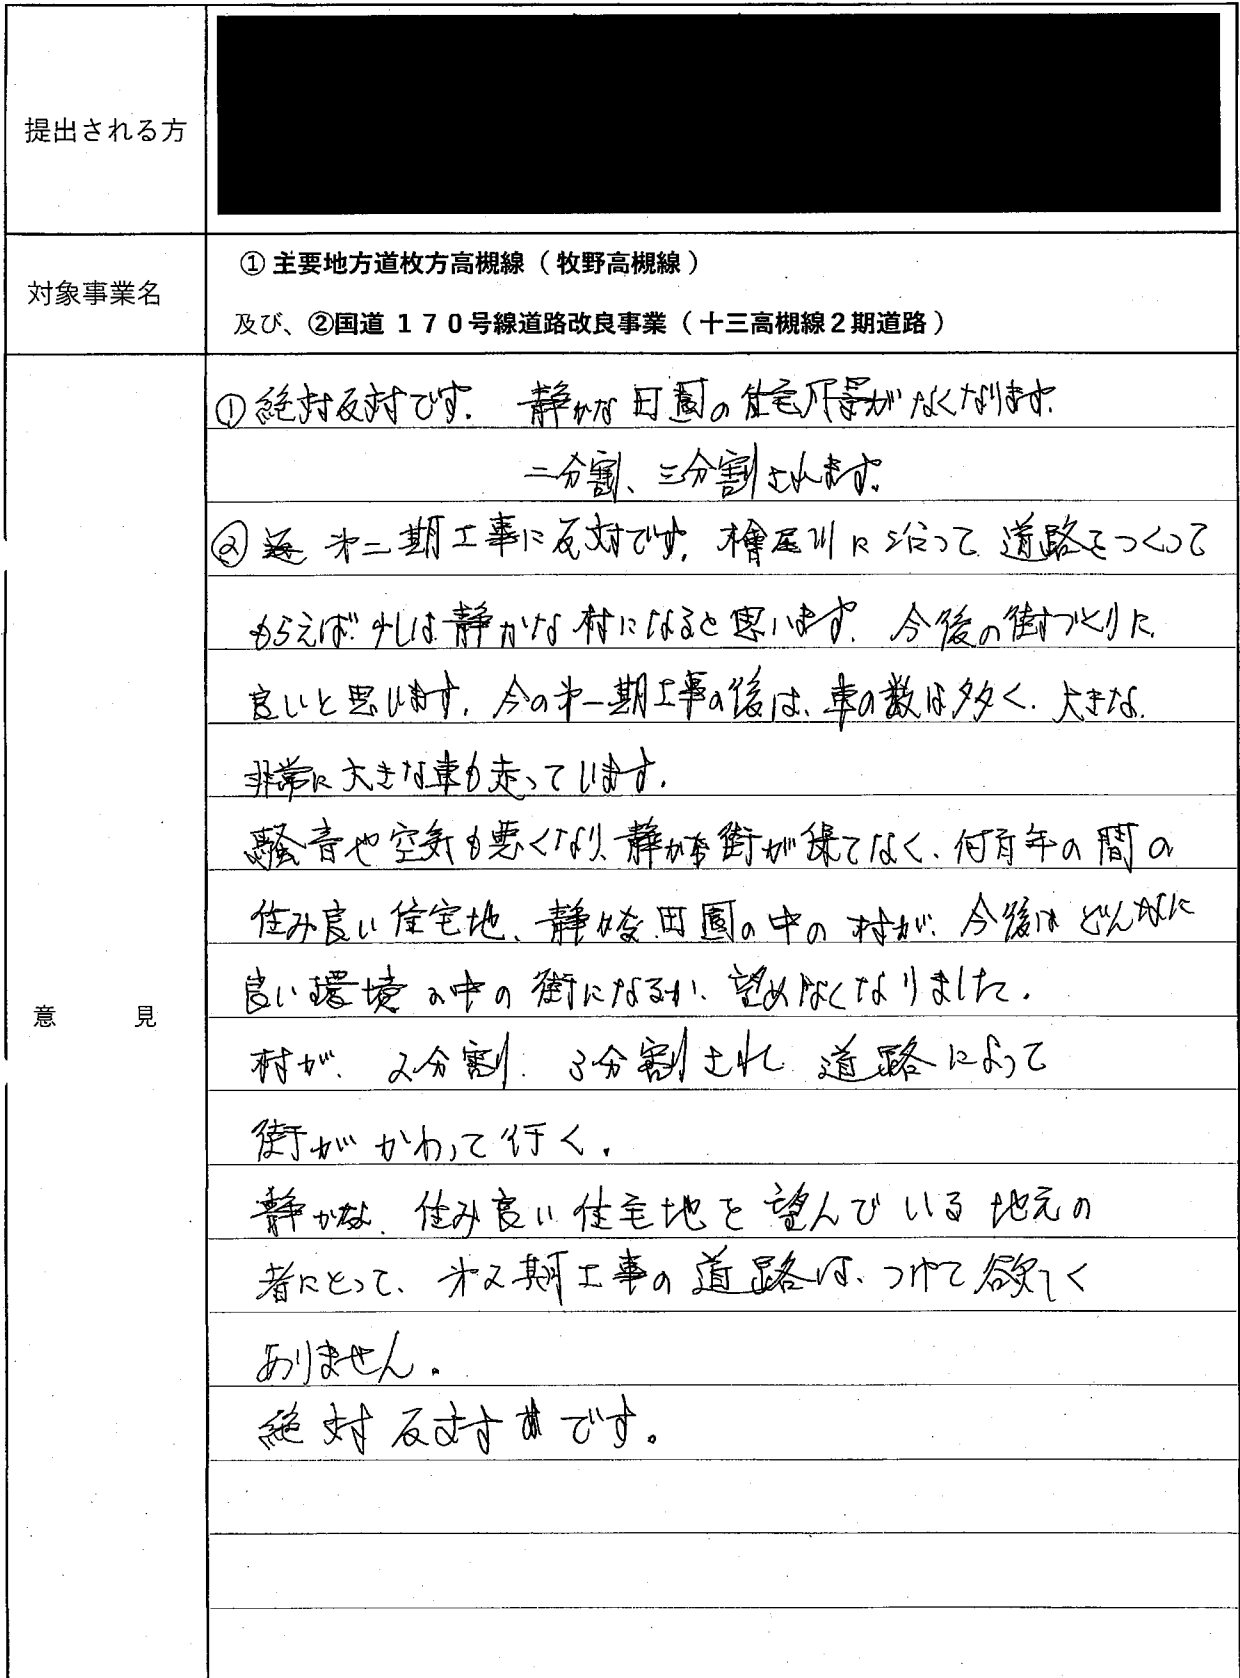 提出される方
対象事業名
① 主要地方道枚方高槻線（牧野高槻線）
及び、②国道 １７０号線道路改良事業（十三高槻線２期道路）
意 見
① 絶対反対です。 静かな田園の住宅がなくなります。
二分割、三分割されます。
② 第二期工事に反対です。檜尾川に沿って道路をつくって
もらえば少しは静かな村になると思います。 今後の街づくりに
良いと思います。今の第一期工事の後は、車の数は多く、大きな
非常に大きな車も走っています。
騒音や空気も悪くなり、静かな街が保てなく、何百年の間の
住み良い住宅地、静かな田園の中の村が、今後はどんなに
良い環境の中の街になるか、望めなくなりました。
村が、２分割、３分割され 道路によって
街がかわって行く。
静かな、住み良い住宅地を望んでいる地元の
者にとって、第２期工事の道路は、つけて欲しく
ありません。
絶対反対です。